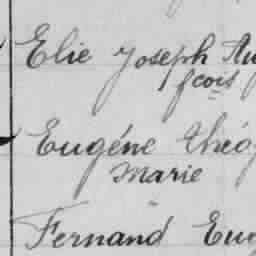 Elie Joseph Au
fcois
Eugéne théo
Marie
Fernand Eug